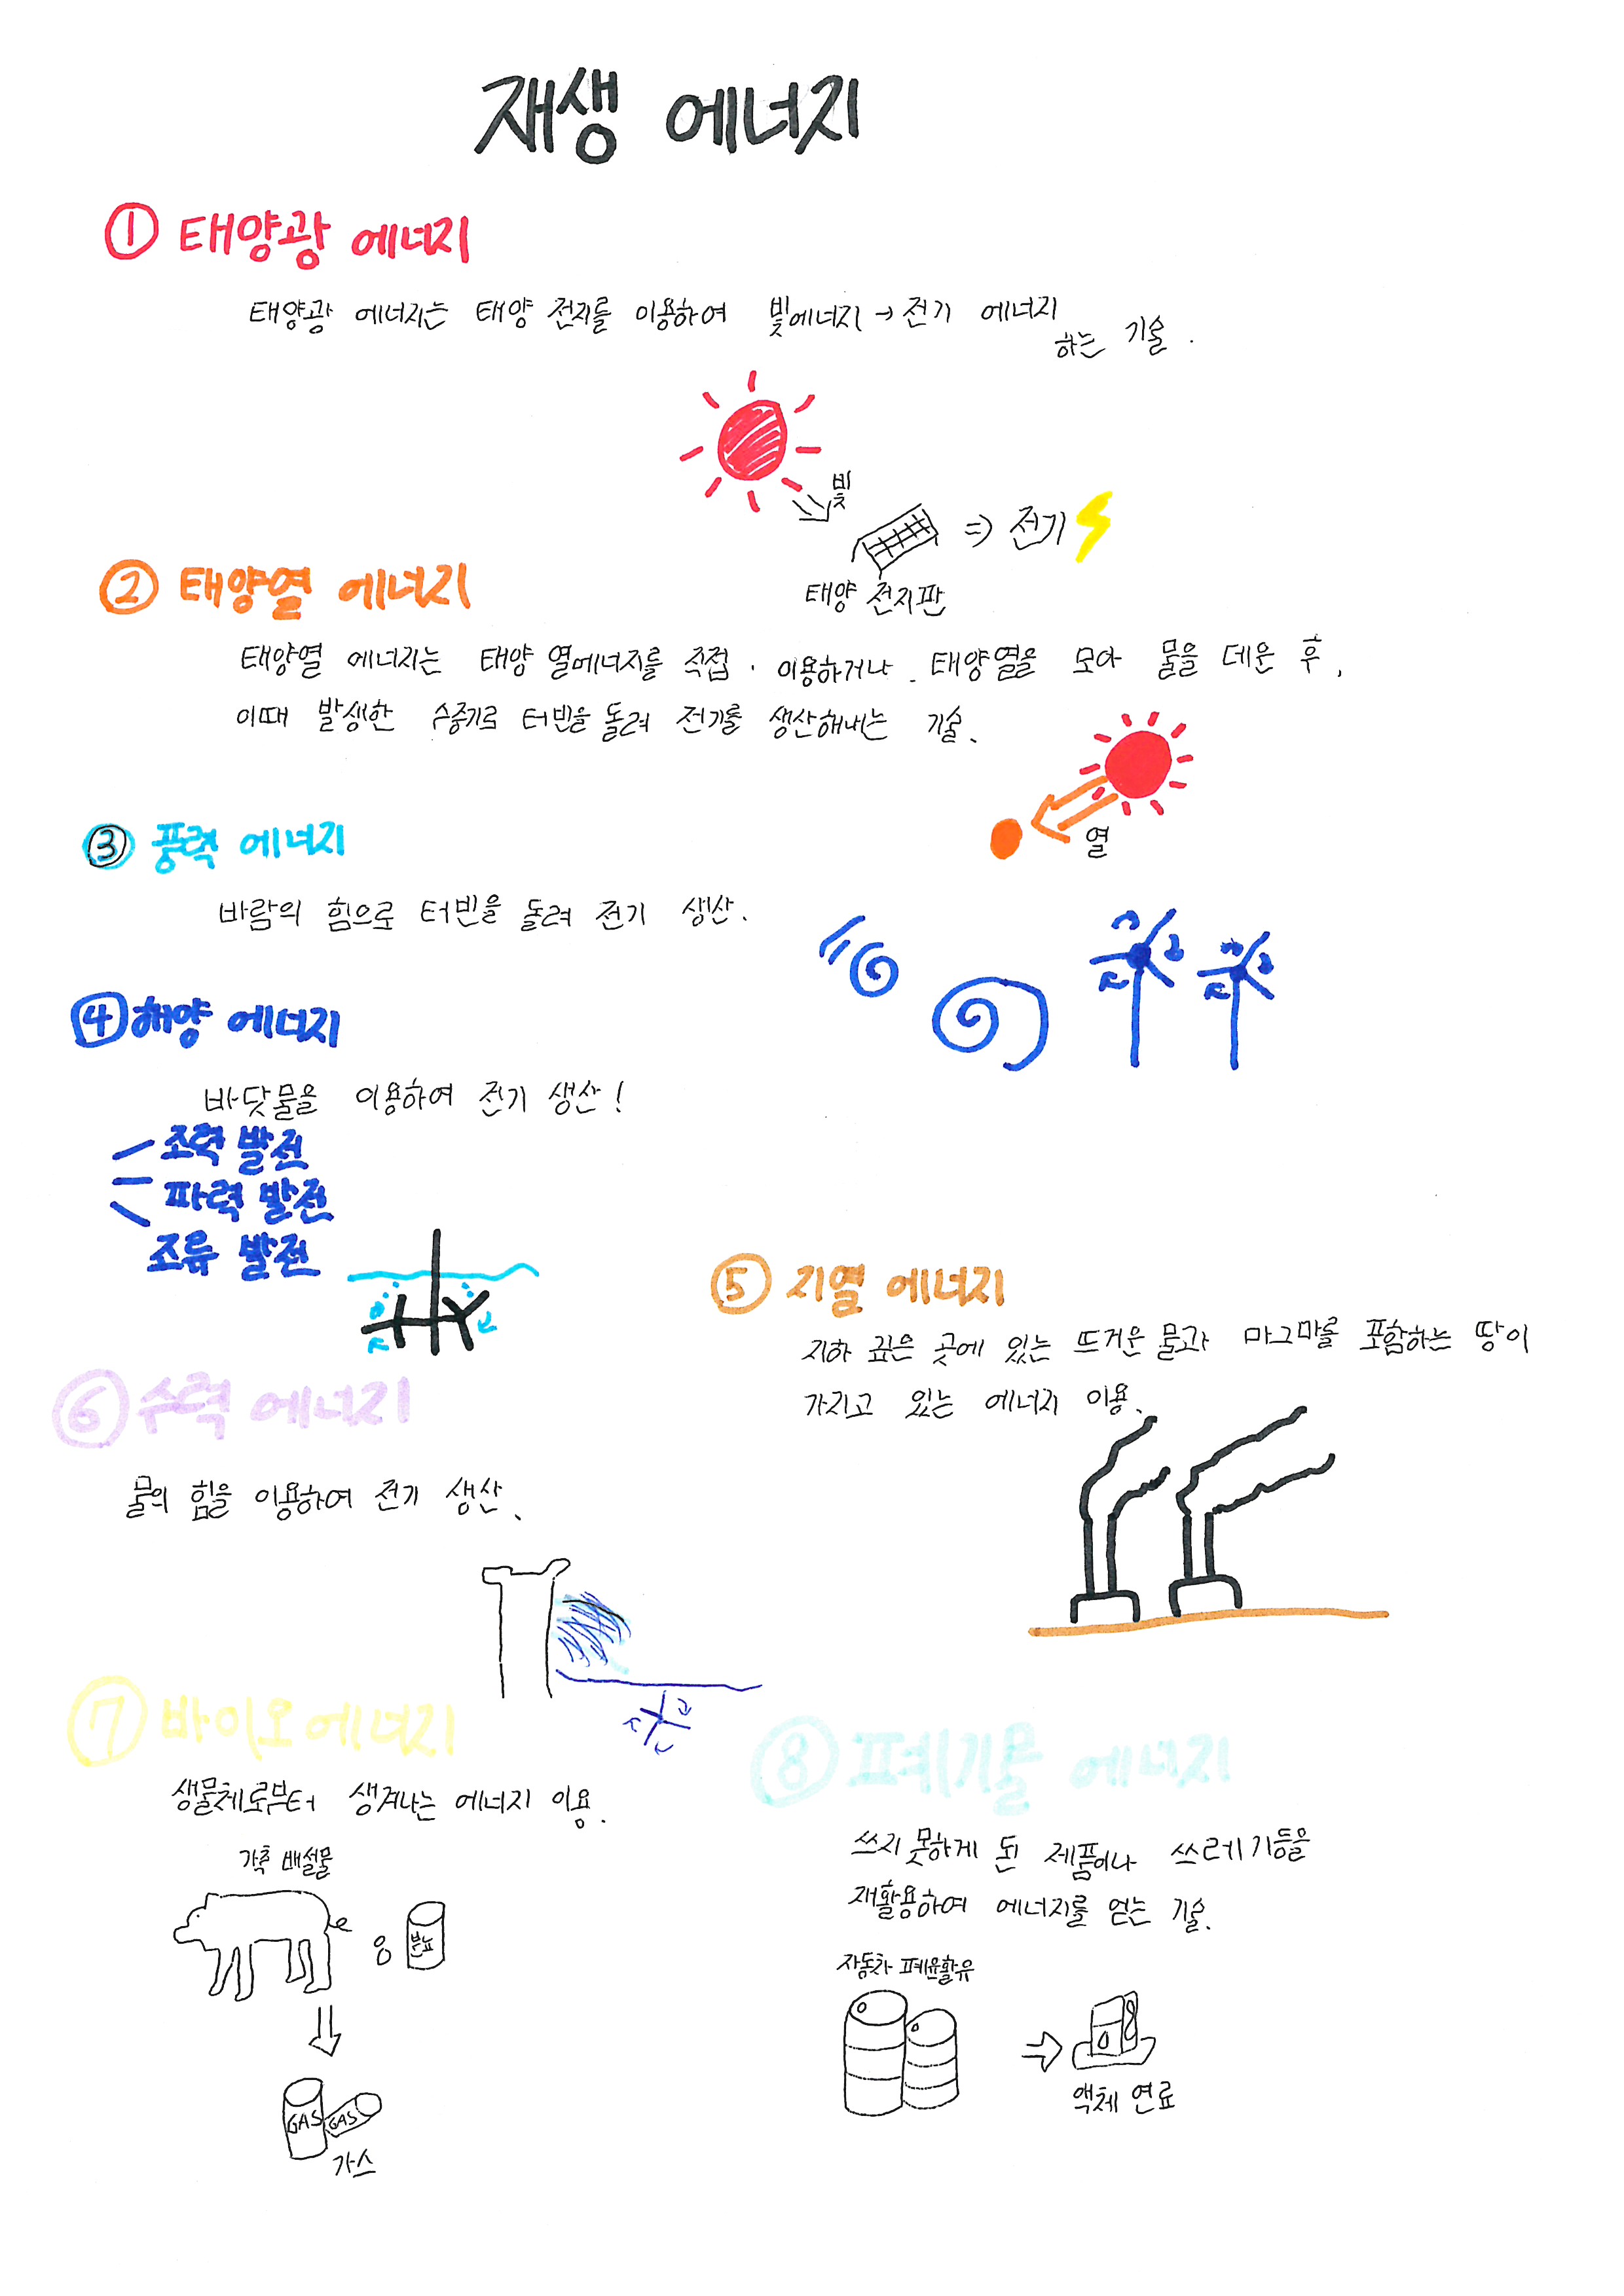 재생 에너지
① 태양광 에너지
태양광 에너지는 태양 전지를 이용하여 빛에너지→전기 에너지
하는 기술.
빛
⇒ 전기
태양 전지판
② 태양열 에너지
태양열 에너지는 태양 열에너지를 직접 이용하거나 태양열을 모아 물을 데운 후,
이때 발생한 수증기로 터빈을 돌려 전기를 생산해내는 기술.
열
③ 풍력 에너지
바람의 힘으로 터빈을 돌려 전기 생산.
④ 해양 에너지
바닷물을 이용하여 전기 생산!
조력 발전
파력 발전
조류 발전
⑤ 지열 에너지
지하 깊은 곳에 있는 뜨거운 물과 마그마를 포함하는 땅이
가지고 있는 에너지 이용.
⑥ 수력 에너지
물의 힘을 이용하여 전기 생산.
⑦ 바이오에너지
생물체로부터 생겨나는 에너지 이용.
가축 배설물
분뇨
GAS GAS
가스
⑧ 폐기물 에너지
쓰지 못하게 된 제품이나 쓰레기등을
재활용하여 에너지를 얻는 기술.
자동차 폐윤활유
액체 연료